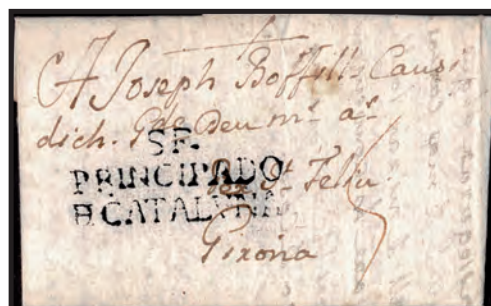 A Joseph Boffill Caus-
dich. Gde Deu ms as
S F.
PRINCIPADO
D CATALVÑA
St. Feliu
Girona